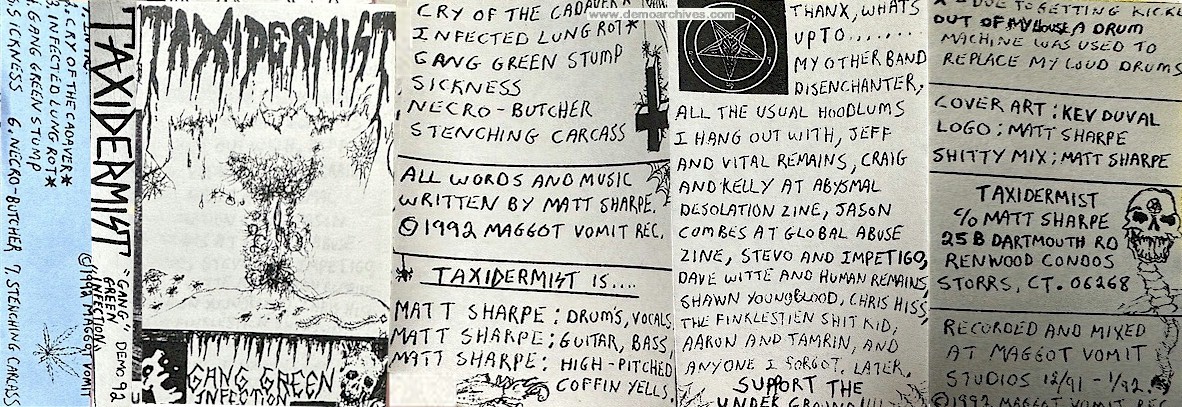 1. CRY OF THE CADAVER*
3. INFECTED LUNG ROT*
4. GANG GREEN STUMP
5. SICKNESS 6. NECRO-BUTCHER 7. STENCHING CARCASS
TAXIDERMIST "GANG GREEN INFECTION" DEMO 92
©1992 MAGGOT VOMIT
TAXIDERMIST
GANG GREEN
INFECTION
www.demoarchives.com
CRY OF THE CADAVER
INFECTED LUNG ROT*
GANG GREEN STUMP
SICKNESS
NECRO-BUTCHER
STENCHING CARCASS
ALL WORDS AND MUSIC
WRITTEN BY MATT SHARPE.
©1992 MAGGOT VOMIT REC.
TAXIDERMIST IS....
MATT SHARPE: DRUM'S, VOCALS
MATT SHARPE: GUITAR, BASS,
MATT SHARPE: HIGH-PITCHED
COFFIN YELLS,
THANX, WHATS
UP TO.......
MY OTHER BAND
DISENCHANTER,
ALL THE USUAL HOODLUMS
I HANG OUT WITH, JEFF
AND VITAL REMAINS, CRAIG
AND KELLY AT ABYSMAL
DESOLATION ZINE, JASON
COMBES AT GLOBAL ABUSE
ZINE, STEVO AND IMPETIGO,
DAVE WITTE AND HUMAN REMAINS,
SHAWN YOUNGBLOOD, CHRIS HISS,
THE FINKLESTIEN SHIT KID,
AARON AND TAMRIN, AND
ANYONE I FORGOT. LATER.
SUPPORT THE
UNDERGROUND!!!!
X - DUE TO GETTING KICKED
OUT OF MY HOUSE A DRUM
MACHINE WAS USED TO
REPLACE MY LOUD DRUMS
COVER ART: KEV DUVAL
LOGO: MATT SHARPE
SHITTY MIX: MATT SHARPE
TAXIDERMIST
C/O MATT SHARPE
25 B DARTMOUTH RD
RENWOOD CONDOS
STORRS, CT. 06268
RECORDED AND MIXED
AT MAGGOT VOMIT
STUDIOS 12/91 - 1/92
©1992 MAGGOT VOMIT REC